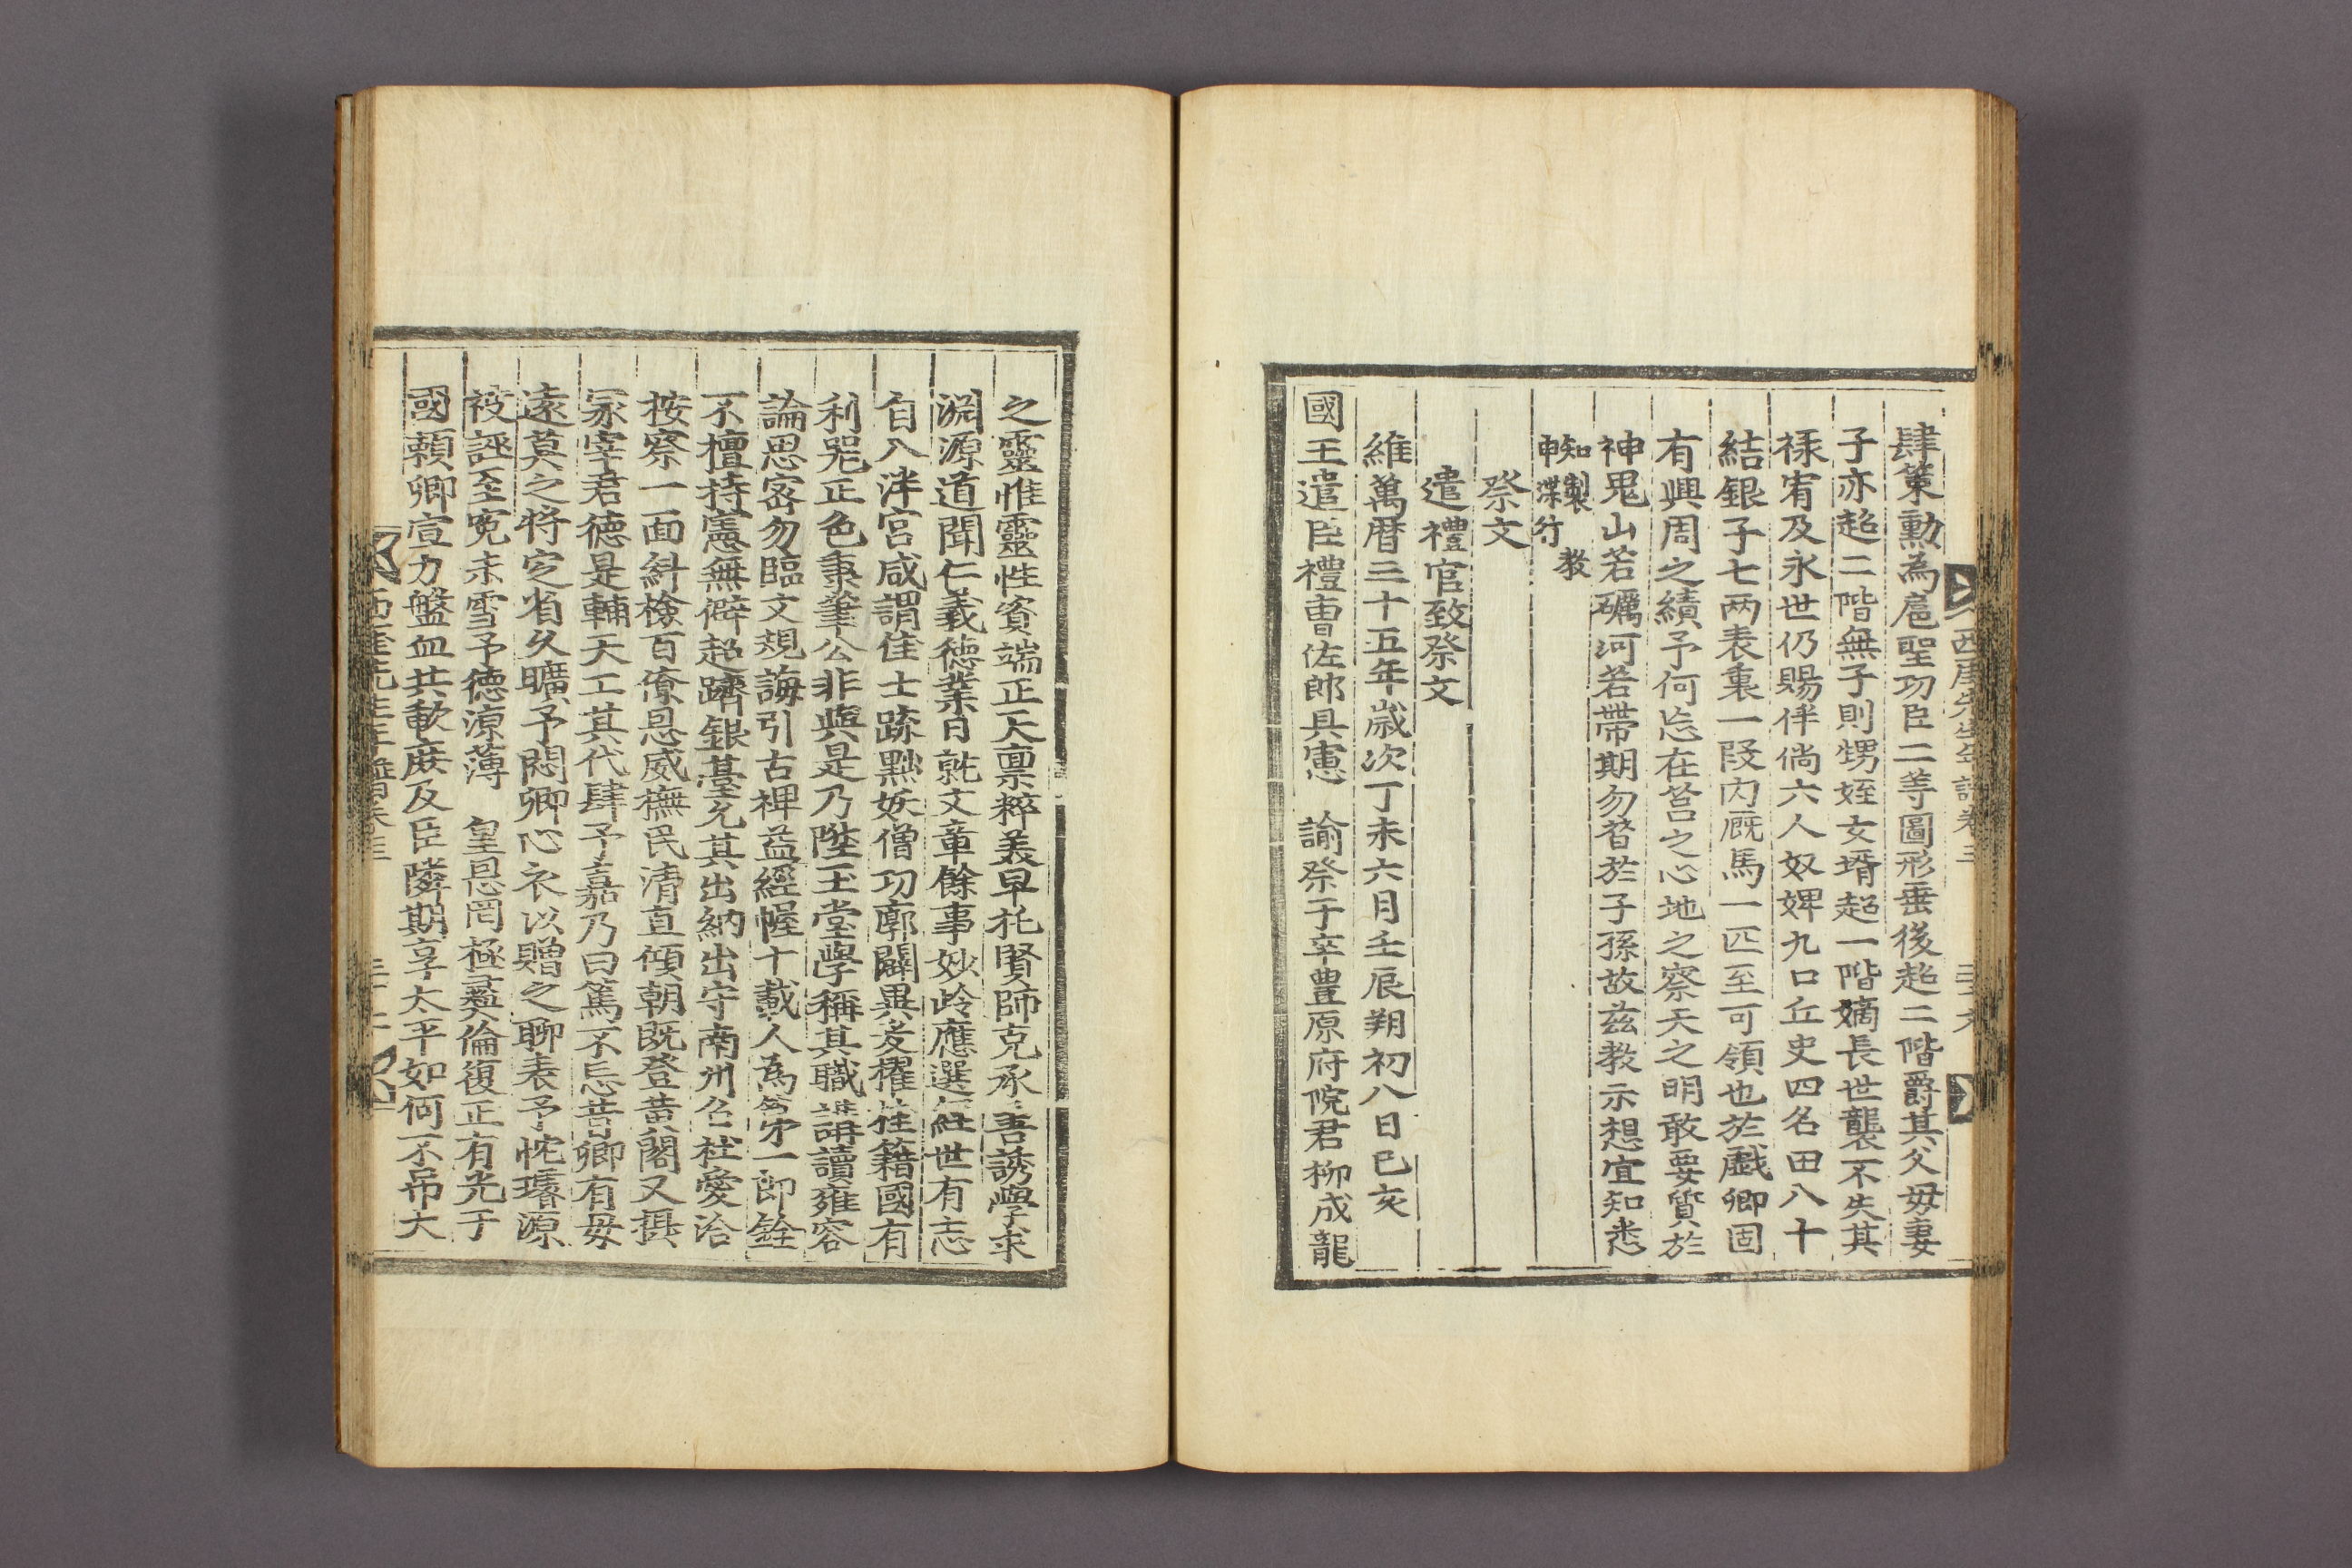 西厓先生年譜卷三
肆策勳為扈聖功臣二等圖形垂後超二階爵其父母妻
子亦超二階無子則甥姪女壻超一階嫡長世襲不失其
祿宥及永世仍賜伴倘六人奴婢九口丘史四名田八十
結銀子七兩表裏一段內廐馬一匹至可領也於戲卿固
有興周之績予何忘在莒之心地之察天之明敢要質於
神鬼山若礪河若帶期勿替於子孫故玆教示想宜知悉
知製教
申渫行
祭文
遣禮官致祭文
維萬曆三十五年歲次丁未六月壬辰朔初八日己亥
國王遣臣禮曹佐郎具憲 諭祭于卒豊原府院君柳成龍
之靈惟靈性資端正天禀粹美早托賢師克承善誘學求
淵源道聞仁義德業日就文章餘事妙齡應選經世有志
自入泮宮咸謂佳士疏黜妖僧功廓闢異爰擢桂籍國有
利器正色秉筆公非與是乃陞玉堂學稱其職講讀雍容
論思密勿臨文規誨引古裨益經幄十載人為第一郎銓
不擅持憲無僻超躋銀臺允其出納出守南州召杜愛洽
按察一面糾檢百僚恩威撫民清直傾朝既登黃閣又摄
冢宰君德是輔天工其代肆予嘉乃曰篤不忘昔卿有母
遠莫之將定省久曠予悶卿心衣以贈之聊表予忱璿源
被誣至寃未雪予德凉薄 皇恩罔極彛倫復正有光于
國賴卿宣力盤血共歃庶及臣隣期享太平如何不吊大
西厓先生年譜卷三